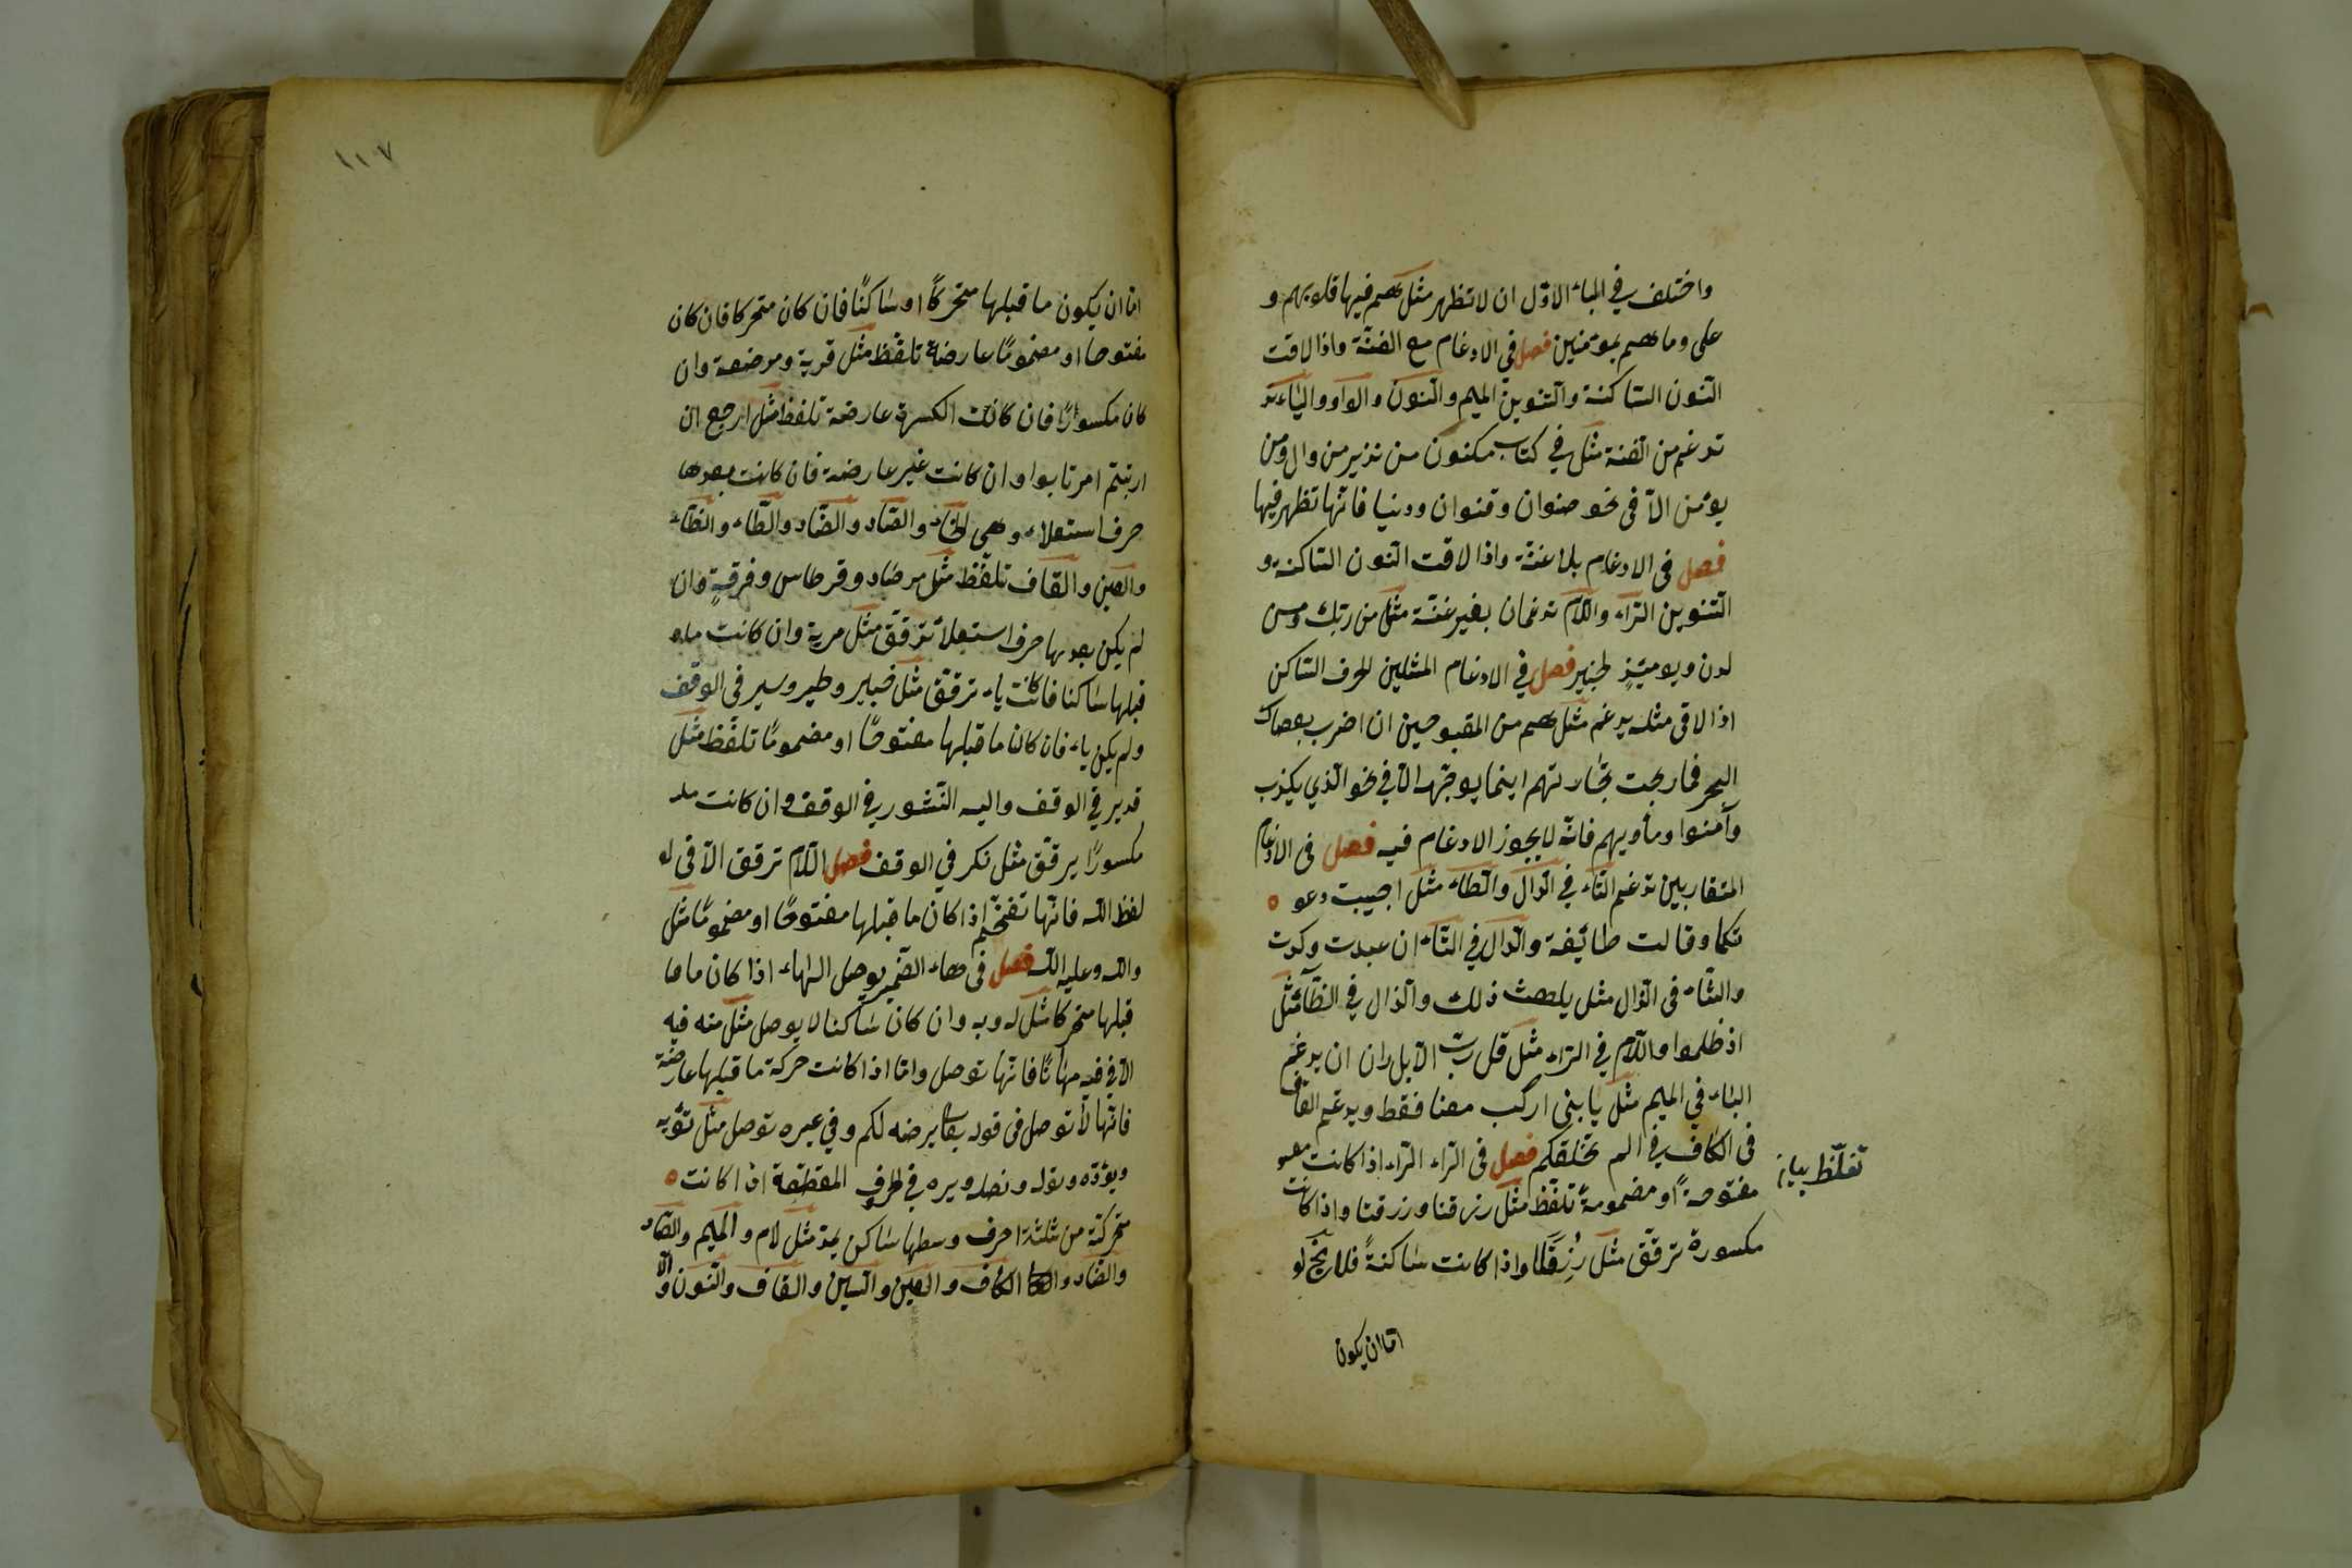 واختلف في الباء الاوّل ان لا تظهر مثل هم فيها قلوبهم و
على وما هم بمؤمنين فصل فى الادغام مع الغنّة واذا لاقت
النّون السّاكنة والتّنوين الميم والنّون والواو والياء
تدغم من الغنة مثل في كتاب مكنون من نذير من وال ومن
يؤمن الّا فى نحو صنوان وقنوان ودنيا فانّها تظهر فيها
فصل فى الادغام بلا غنّة واذا لاقت النّون السّاكنة و
التّنوين الرّاء واللّام تدغمان بغير غنّة مثل من ربّك ومن
لدن ويومئذٍ لخبير فصل في الادغام المثلين الحرف السّاكن
اذا لاقى مثله يدغم مثل هم من المقبوحين ان اضرب بعصاك
البحر فما ربحت تجّارتهم اينما يوجّهه الّا في نحو الّذي يكذب
وآمنوا ومأويهم فانّه لا يجوز الادغام فيه فصل فى الادغام
المتقاربين تدغم التّاء في الدّال والطّاء مثل اجيبت دعو
تكما وقالت طائفة والدّال في التّاء ان عبدت وكدت
والثّاء فى الذّال مثل يلهث ذلك والذال في الظّاء مثل
اذ ظلموا واللّام في الرّاء مثل قل ربّ الّا بل ران ان يدغم
الباء في الميم مثل يا بنى اركب معنا فقط ويدغم القاف
فى الكاف في الم نخلقكم فصل فى الرّاء الرّاء اذا كانت
مفتوحةً او مضمومةً تلفّظ مثل رزقنا ورزقنا واذا كانت
مكسورة ترقّق مثل رُزِقَنَا واذا كانت ساكنةً فلا يخ لو
تغلّظ بيان
امّا ان يكون
١١٧
امّا ان يكون ما قبلها متحركًا او ساكنًا فان كان متحركا فان كان
مفتوحا او مضمومًا عارضة تلفّظ مثل قرية ومرضعة وان
كان مكسورًا فان كانت الكسرة عارضة تلفظ مثل ارجع ان
ارتبتم ام ارتابوا وان كانت غير عارضة فان كانت بعدها
حرف استعلاء وهى الخاء والصّاد والضّاد والطّاء والظّاء
والغين والقاف تلفّظ مثل مرصاد وقرطاس وفرقةٍ وان
لم يكن بعدها حرف استعلا ترقّق مثل مرية وان كانت ما
قبلها ساكنا فان كانت ياء ترقّق مثل خيبر وطير وسير فى الوقف
ولم يكن ياء فان كان ما قبلها مفتوحًا او مضمومًا تلفّظ مثل
قدير في الوقف واليه النّشور في الوقف وان كانت
مكسورًا يرقّق مثل نكر في الوقف فصل اللّام ترقق الّا فى
لفظ اللّه فانّها تفخّم اذا كان ما قبلها مفتوحًا او مضمومًا مثل
واللّه وعليه اللّه فصل فى هاء الضّمير يوصل الهاء اذا كان ما
قبلها متحركا مثل له وبه وان كان ساكنا لا يوصل مثل منه فيه
الّا في فيه مهانًا فانّها توصل وامّا اذا كانت حركة ما قبلها عارضة
فانّها لا توصل فى قوله يرضه لكم وفي غيره توصل مثل نؤته
ويؤدّه ونوله ونصله ويره في الحرف المقطّعة اذا كانت
متحركة من ثلثة احرف وسطها ساكن يمدّ مثل لام والميم والصّاد
والضّاد والكاف والعين والسّين والقاف والنّون الّا